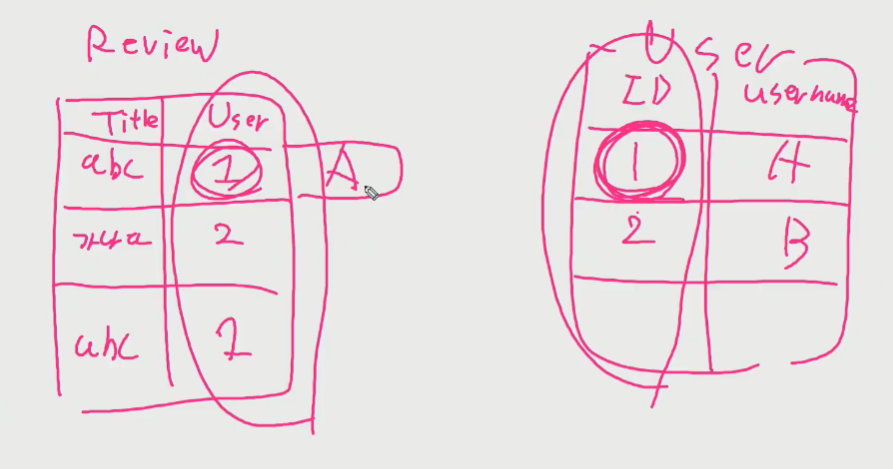 Review
Title User
abc 1 A
가나다 2
abc 1
User
ID username
1 A
2 B